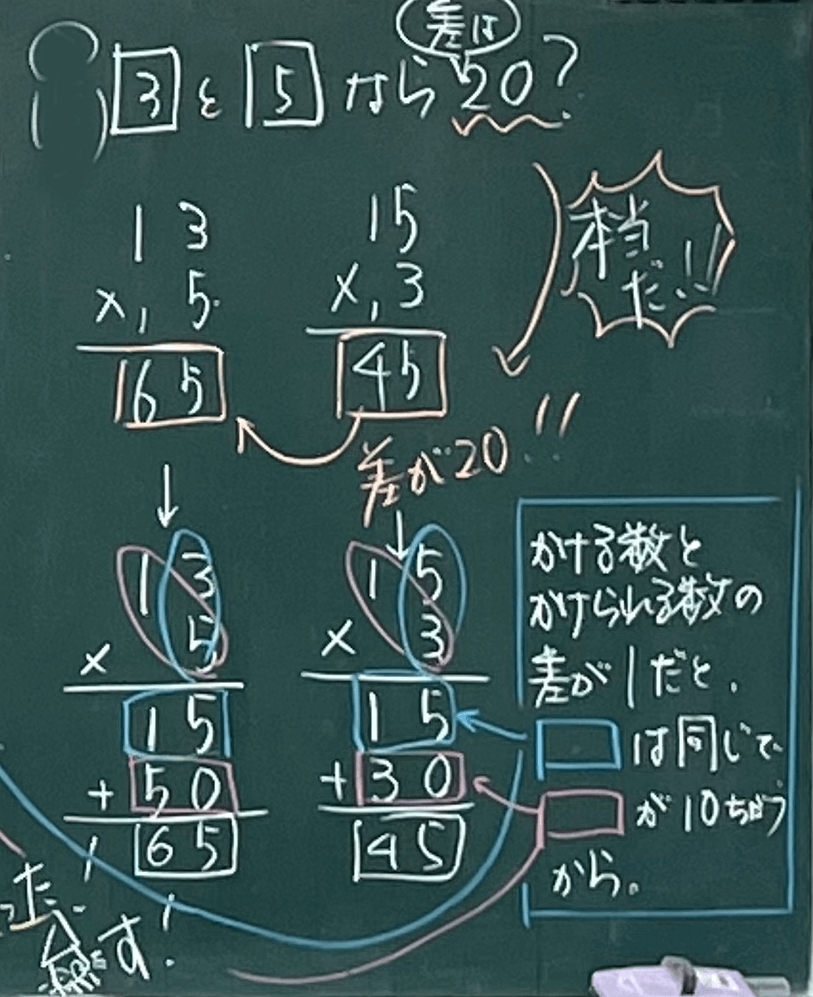 差は
3と5なら20?
13
×5
65
15
×3
45
本当
だ!!
差が20!!
13
× 5
15
+50
65
15
× 3
15
+30
45
かける数と
かけられる数の
差が1だと、
は同じで
が10ちがう
から。
す!